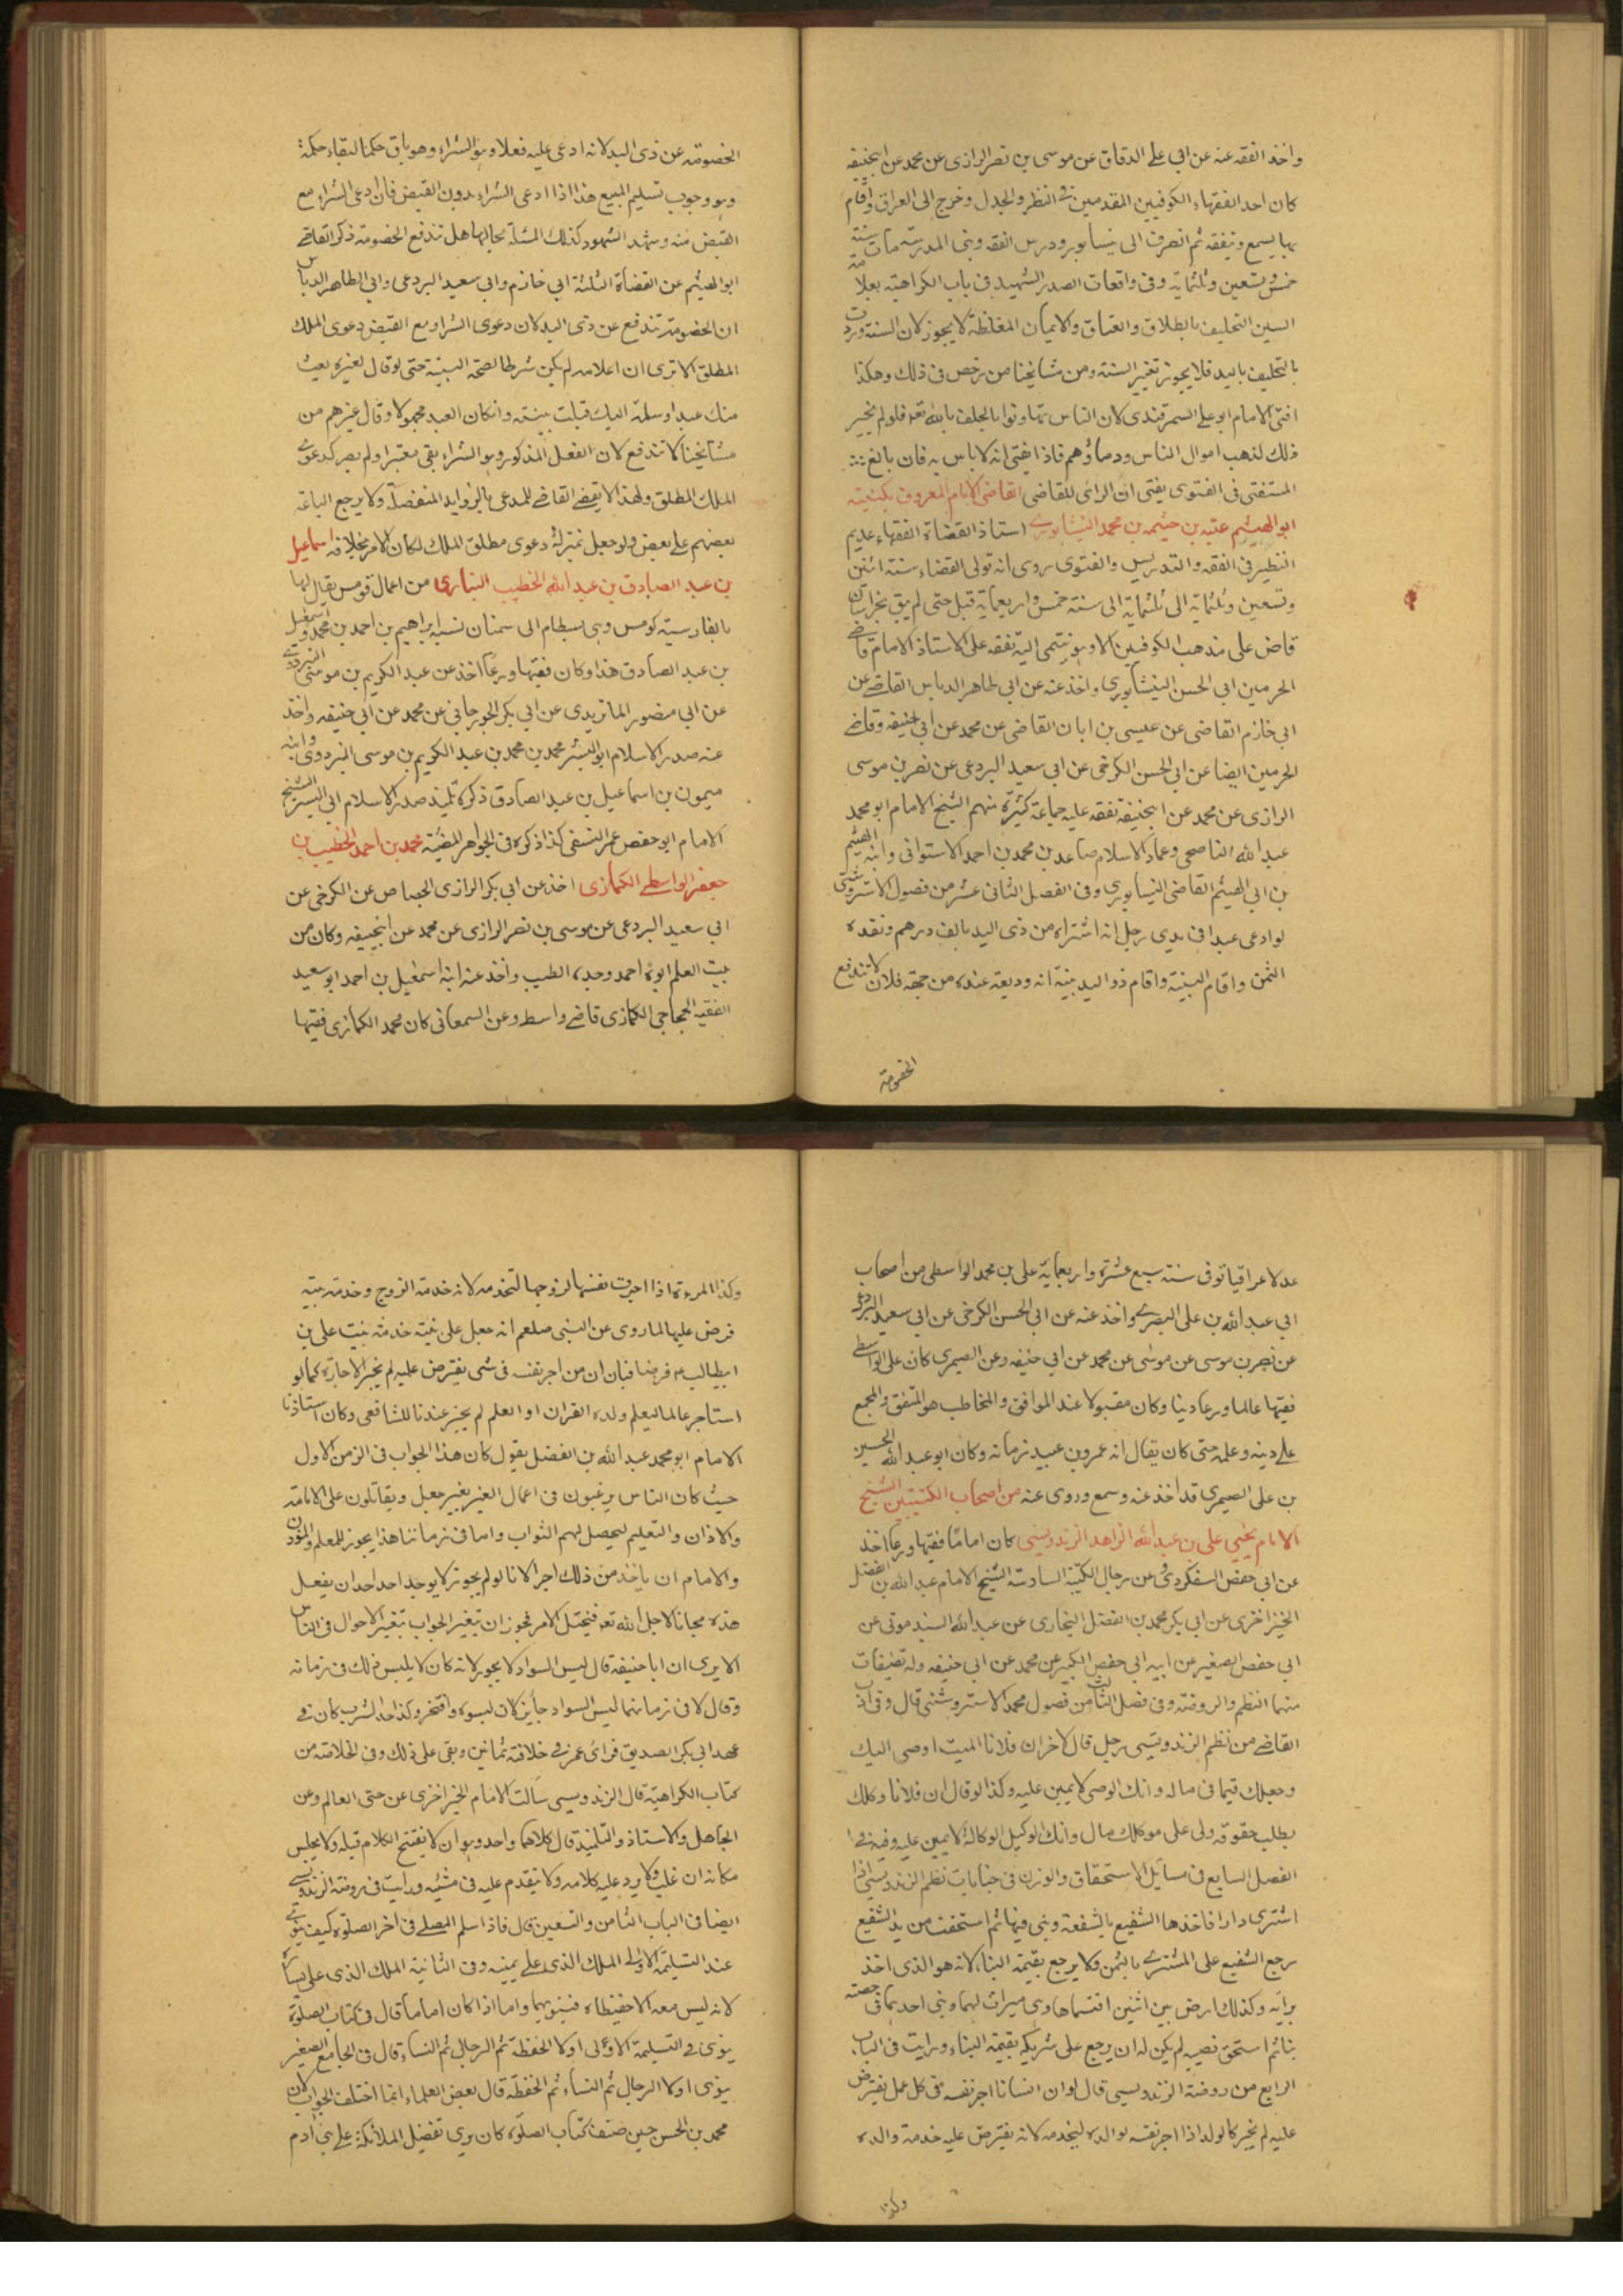 واخذ الفقه عنه عن ابي على الدقاق عن موسى بن نصر الرازى عن محمد عن ابيحنيفه
كان احد الفقهاء الكوفيين المقدمين فى النظر والجدل وخرج الى العراق واقام
بها يسمع ويتفقه ثم انصرف الى نيسابور ودرس الفقه وبنى المدرسة مات سنة
خمس وتسعين وثلثماية وفى واقعات الصدر الشهيد فى باب الكراهية بعلامة
السين التحليف بالطلاق والعتاق والايمان المغلظة لا يجوز لان السنة وردت
بالتحليف بالله فلا يجوز تغيير السنة ومن مشايخنا من رخص فى ذلك وهكذا
افتى الامام ابو على السمرقندى لان الناس تهاونوا بالحلف بالله تعه فلو لم يخير
ذلك لذهب اموال الناس ودماؤهم فاذا يفتى انه لا باس به فان بالغ
المستفتى فى الفتوى يفتى ان الراى للقاضى القاضى الامام المعروف بكنيته
ابو الهيثم عتبه بن خيثمه بن محمد النيشابورى استاذ القضاة الفقهاء عديم
النظير فى الفقه والتدريس والفتوى روى انه تولى القضاء سنة اثنين
وتسعين وثلثماية الى سنة خمس واربعماية قيل حتى لم يبق بخراسان
قاض على مذهب الكوفيين الا وهو ينتمى اليه تفقه على الاستاذ الامام قاضى
الحرمين ابى الحسن النيشابورى واخذ عنه عن ابى طاهر الدباس القاضى عن
ابى خازم القاضى عن عيسى بن ابان القاضى عن محمد عن ابى حنيفه وقاضى
الحرمين ايضا عن ابى الحسن الكرخى عن ابى سعيد البردعى عن نصر بن موسى
الرازى عن محمد عن ابيحنيفة تفقه عليه جماعة كثيرة منهم الشيخ الامام ابو محمد
عبد الله الناصحى وعماد الاسلام صاعد بن محمد بن احمد الاستوائى وابنه الهيثم
بن ابى الهيثم القاضى النيسابورى وفى الفصل الثانى عشر من فصول الاستروشنى
لو ادعى عبدا فى يدى رجل انه اشتراه من ذى اليد بالف درهم ونقده
الثمن واقام البينة واقام ذو اليد بينة انه وديعة عنده من جهة فلان لا تندفع
الخصومة
الخصومة عن ذى اليد لانه ادعى عليه فعلا وهو الشراء وهو باق حكما لبقاء حكمه
وهو وجوب تسليم المبيع هذا اذا ادعى الشراء بدون القبض فان ادعى الشراء مع
القبض منه وشهد الشهود كذلك المسئلة بحالها هل تندفع الخصومة ذكر القاضى
ابو الهيثم عن القضاة الثلثة ابى خازم وابى سعيد البردعى وابى الطاهر الدباس
ان الخصومة تندفع عن ذى اليد لان دعوى الشراء مع القبض دعوى الملك
المطلق الا ترى ان اعلامه لم يكن شرطا لصحة البينة حتى لو قال لغيره بعت
منك عبدا وسلمته اليك قبلت بينته وان كان العبد مجهولا وقال غيرهم من
مشايخنا لا تندفع لان الفعل المذكور وهو الشراء بقى معتبرا ولم يصر كدعوى
الملك المطلق ولهذا لا يقضى القاضى للمدعى بالزوايد المنفصلة ولا يرجع الباعة
بعضهم على بعض ولو جعل بمنزلة دعوى مطلق الملك لكان الامر بخلافه اسماعيل
بن عبد الصادق بن عبد الله الخطيب البيارى من اعمال قومس يقال لها
بالفارسية كومس وهى بسطام الى سمنان نسبة ابراهيم بن احمد بن محمد واسمعيل
بن عبد الصادق هذا وكان فقيها ورعا اخذ عن عبد الكريم بن موسى البزدوى
عن ابى منصور الماتريدى عن ابى بكر الجوزجانى عن محمد عن ابى حنيفه واخذ
عنه صدر الاسلام ابو اليسر محمد بن محمد بن عبد الكريم بن موسى البزدوى وابنه
ميمون بن اسماعيل بن عبد الصادق ذكره تلميذ صدر الاسلام ابى اليسر الشيخ
الامام ابو حفص عمر النسفى كذا ذكره فى الجواهر المضية محمد بن احمد الخطيب بن
جعفر الواسطى الكمازى اخذ عن ابى بكر الرازى الجصاص عن الكرخى عن
ابى سعيد البردعى عن موسى بن نصر الرازى عن محمد عن ابيحنيفه وكان من
بيت العلم ابوه احمد وجده الطيب واخذ عنه ابنه اسمعيل بن احمد ابو سعيد
الفقيه الحجاجى الكمازى قاضى واسط وعن السمعانى كان محمد الكمازى فقيها
عدلا عراقيا توفى سنة سبع عشرة واربعماية على بن محمد الواسطى من اصحاب
ابى عبد الله بن على البصرى واخذ عنه عن ابى الحسن الكرخى عن ابى سعيد البردعى
عن نصر بن موسى عن موسى عن محمد عن ابى حنيفه وعن الصيمرى كان على الواسطى
فقيها عالما ورعا دينا وكان مقبولا عند الموافق والمخاطب هو المتفق والمجمع
على دينه وعلمه حتى كان يقال انه عمرو بن عبيد زمانه وكان ابو عبد الله الحسين
بن على الصيمرى قد اخذ عنه وسمع وروى عنه من اصحاب الكتيبتين الشيخ
الامام يحيى على بن عبد الله الزاهد الزندويسى كان اماما فقيها ورعا اخذ
عن ابى حفص السفكردرى عن رجال الكتيبة السادسة الشيخ الامام عبد الله بن الفضل
الخيزاخزى عن ابى بكر محمد بن الفضل البخارى عن عبد الله السبذمونى عن
ابى حفص الصغير عن ابيه ابى حفص الكبير عن محمد عن ابى حنيفه وله تصنيفات
منها النظم والروضة وفى فصل الثامن من فصول محمد الاستروشنى قال وفى اداب
القاضى من نظم الزندويسى رجل قال لاخر ان فلانا الميت اوصى اليك
وجعلك قيما فى ماله وانك الوصى لا يمين عليه وكذا لو قال ان فلانا وكلك
بطلب حقوقه ولى على موكلك مال وانك الوكيل الوكالة لا يمين عليه وفيه فى
الفصل السابع فى مسائل الاستحقاق والوزن فى جنايات نظم الزندويسى اذا
اشترى دارا فاخذها الشفيع بالشفعة وبنى فيها ثم استحقت من يد الشفيع
رجع الشفيع على المشترى بالثمن ولا يرجع بقيمة البناء لانه هو الذى اخذ
برايه وكذلك ارض بين اثنين اقتسماها وهى ميراث لهما وبنى احدهما فى حصته
بناء ثم استحق نصيبه لم يكن له ان يرجع على شريكه بقيمة البناء ورايت فى الباب
الرابع من روضة الزندويسى قال لو ان انسانا اجر نفسه فى كل عمل يفترض
عليه لم يجز كالولد اذا اجر نفسه لوالده ليخدمه لانه يفترض عليه خدمة والده
وكذا
وكذا المرءة اذا اجرت نفسها لزوجها لتخدمه لانه خدمة الزوج وخدمة بيته
فرض عليها لما روى عن النبى صلعم انه جعل على بنته خدمة بيت على بن
ابيطالب عم فرضا فبان ان من اجر نفسه فى شى يفترض عليه لم يجز الاجارة كما لو
استاجر عالما ليعلم ولده القران او العلم لم يجز عندنا للشافعى وكان استاذنا
الامام ابو محمد عبد الله بن الفضل يقول كان هذا الجواب فى الزمن الاول
حيث كان الناس يرغبون فى اعمال الغير بغير جعل ويقاتلون على الامامة
والاذان والتعليم ليحصل لهم الثواب واما فى زماننا هذا يجوز للمعلم والمؤذن
والامام ان ياخذ من ذلك اجرا لانا لو لم يجوز لا يوجد احد احد ان يفعل
هذه مجانا لاجل الله تعه فيختل الامر فيجوز ان يتغير الجواب بتغير الاحوال فى الناس
الا يرى ان ابا حنيفة قال لبس السواد لا يجوز لانه كان لا يلبس ذلك فى زمانه
وقال لا فى زمانهما لبس السواد جايز كان لبسوه وافتخر وكذا حد الشرب كان فى
عهد ابى بكر الصديق فراى عمر فى خلافة ثمانين وبقى على ذلك وفى الخلاصة من
كتاب الكراهية قال الزندويسى سالت الامام الخيزاخزى عن حق العالم وعن
الجاهل والاستاذ والتلميذ قال كلاهما واحد وهو ان لا يفتتح الكلام قبله ولا يجلس
مكانه ان غاب ولا يرد عليه كلامه ولا يتقدم عليه فى مشيه ورايت فى روضة الزندويسى
ايضا فى الباب الثامن والتسعين قال فاذا سلم المصلى فى اخر الصلوة كيف ينوى
عند التسليمة الاولى الملك الذى على يمينه وفى الثانية الملك الذى على يساره
لانه ليس معه الا حفيظاه فينويهما واما اذا كان اماما قال فى كتاب الصلوة
ينوى فى التسليمة الاولى اولا الحفظة ثم الرجال ثم النساء قال فى الجامع الصغير
ينوى اولا الرجال ثم النساء ثم الحفظة قال بعض العلماء انما اختلف الجواب لان
محمد بن الحسن حين صنف كتاب الصلوة كان يرى تفضيل الملائكة على بنى ادم